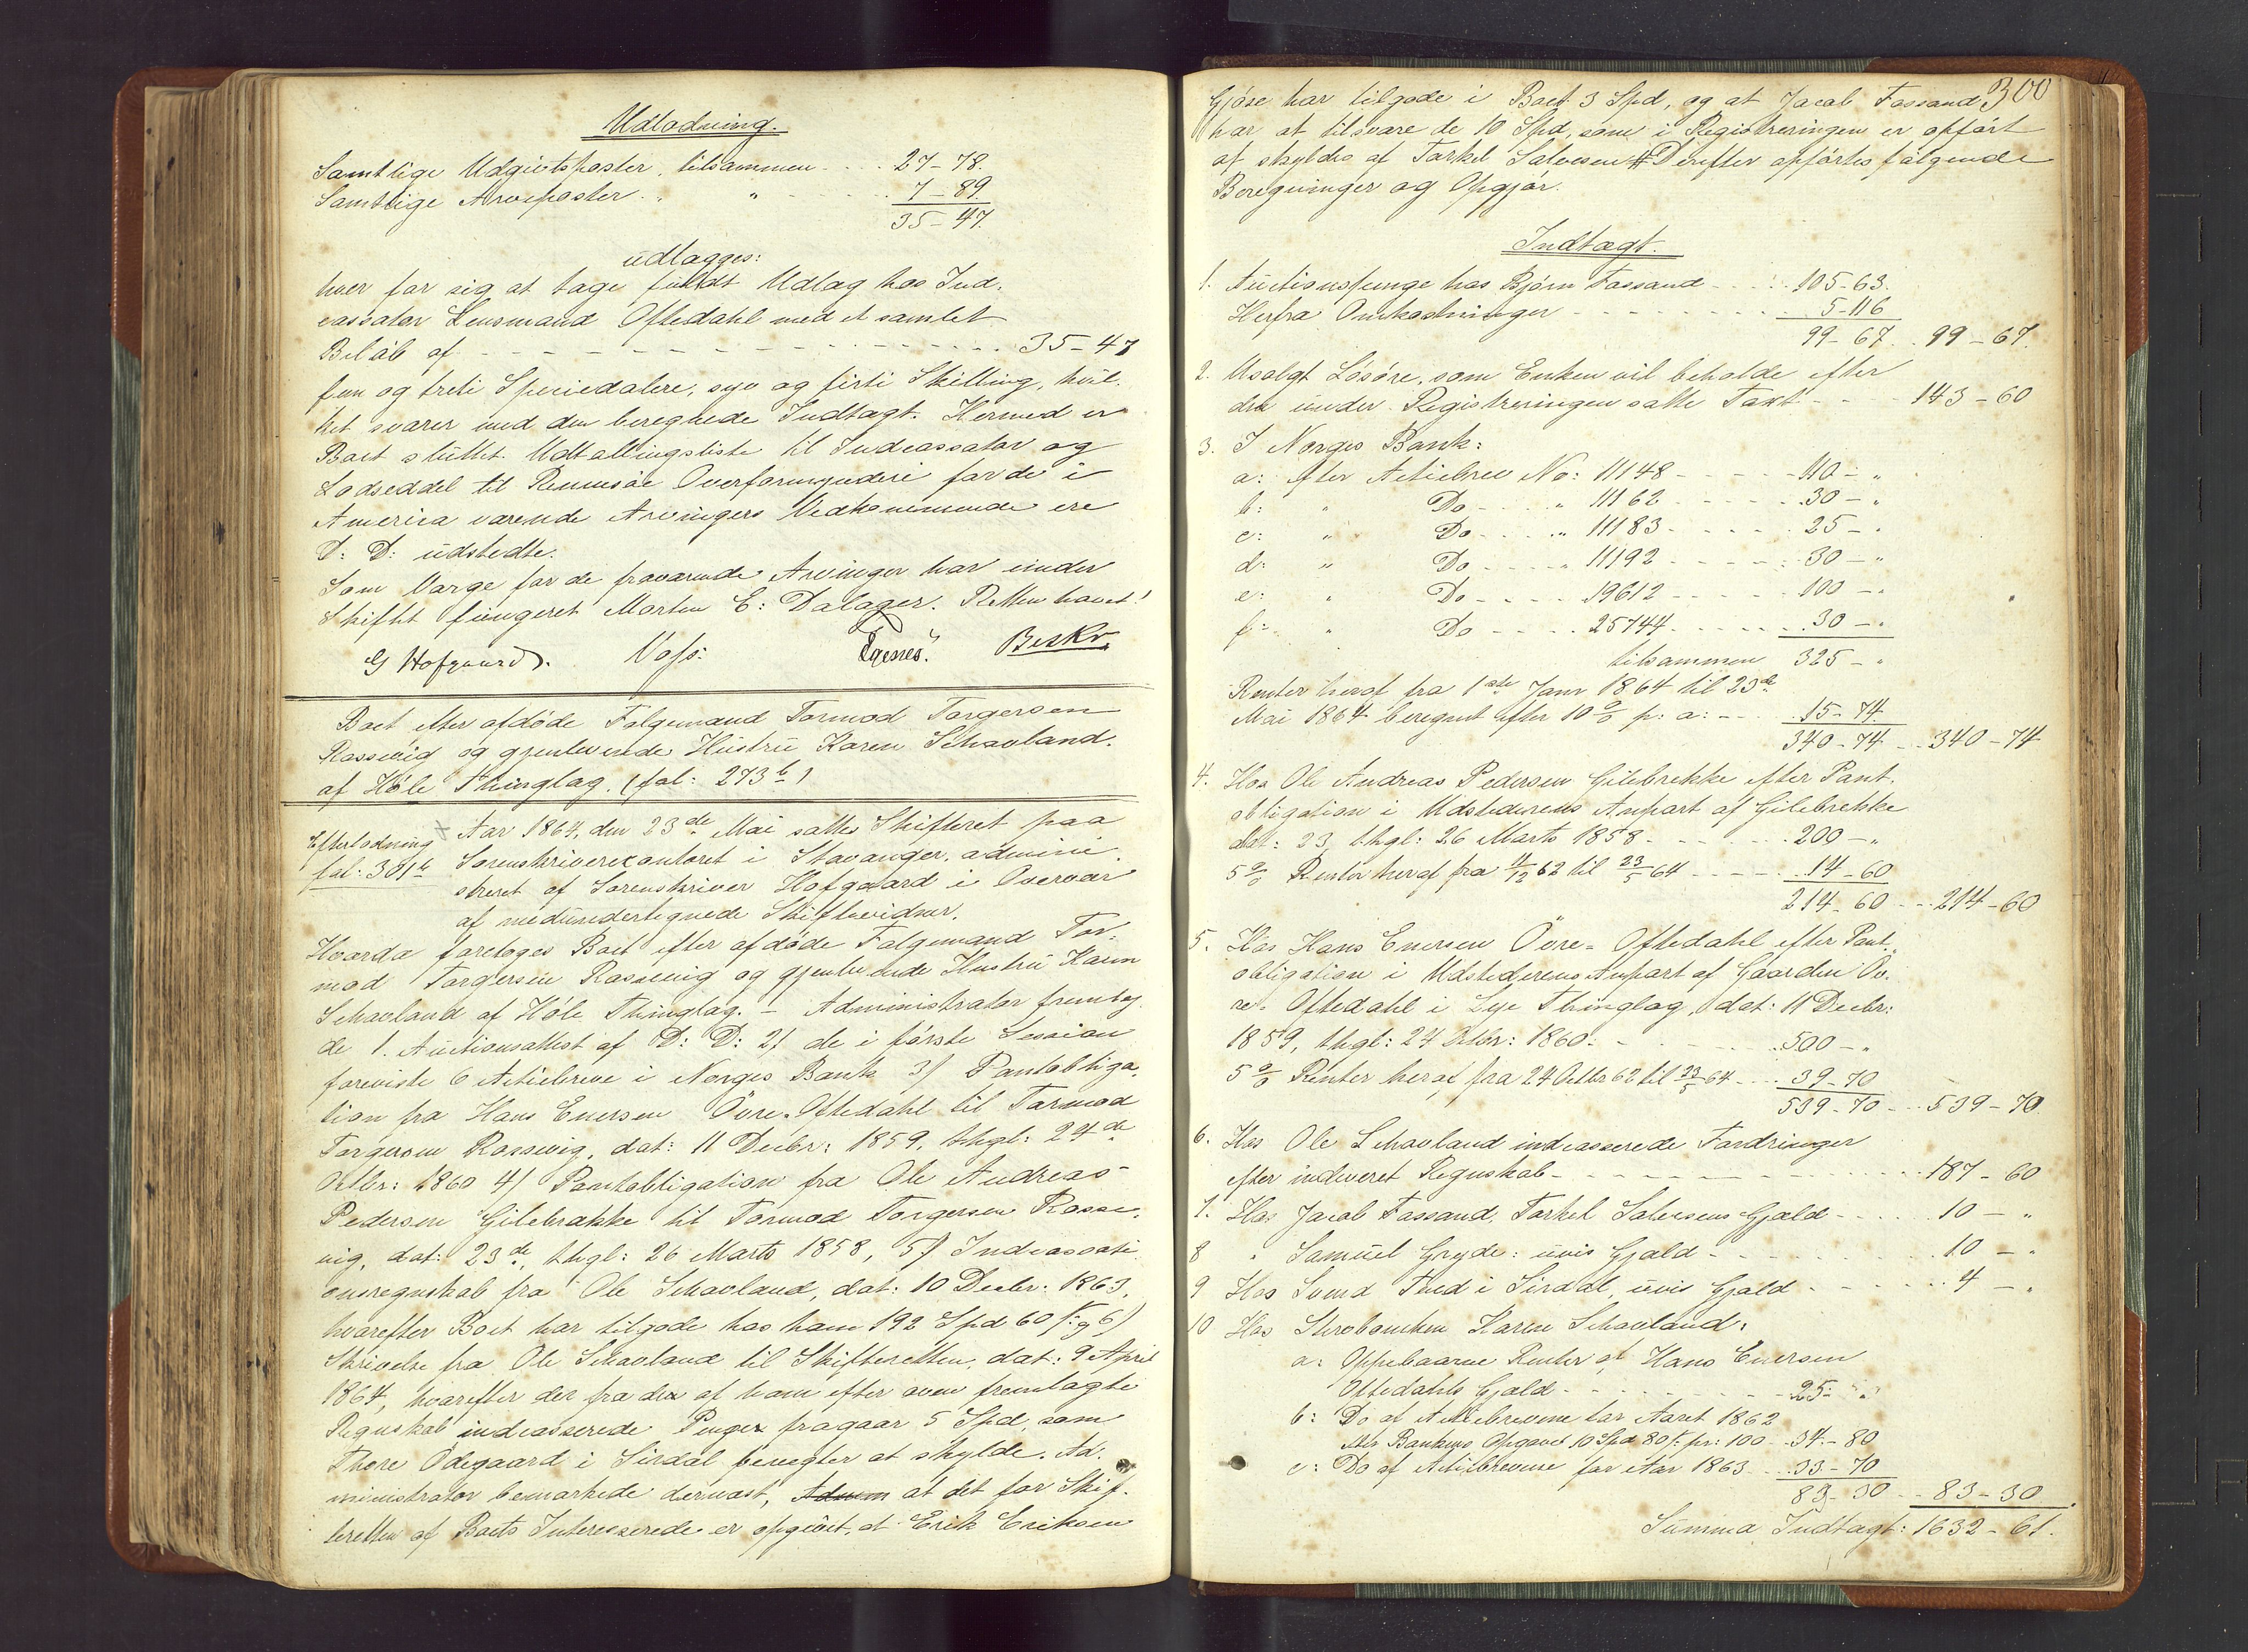 Udlodning.
Samtlige Udgivtsposter, tilsammen 27-78.
Samtlige Arveposter „ „ 7-89.
35-47.
udlægges:
hver for sig at tage fuldt Udlæg hos Ind-
cassator Lensmand Oftedahl med et samlet
Beløb af - - - 35-47
fem og treti Speciedalere, syv og firti Skilling, hvil-
ket svarer med den beregnede Indtægt. Hermed er
Boet sluttet. Udtallingsliste til Indcassator og
Lodseddel til Rennesøe Overformynderi for de i
America værende Arvingers Vedkommende ere
D: D: udstedte.
Som Værge for de fraværende Arvinger har under
Skiftet fungeret Morten E: Dalager. Retten hævet!
G Hofgaard. Voss: Egenes. Beskr.
Boet efter afdøde Følgemand Tormod Torgersen
Rossevig og gjenlevende Hustru Karen Schavland.
af Høle Thinglag. (fol: 273b)
Efterlodning
fol: 301b
Aar 1864, den 23de Mai sattes Skifteret paa
Sorenskrivercontoret i Stavanger, admini-
streret af Sorenskriver Hofgaard i Overvær
af medundertegnede Skiftevidner.
Hvorda foretoges Boet efter afdøde Følgemand Tor-
mod Torgersen Rossevig og gjenlevende Hustru Karen
Schavland af Høle Thinglag. - Administrator fremlag-
de 1. Auctionsattest af D: D: 2) de i første Session
foreviste 6 Actiebreve i Norges Bank 3) Pantobliga-
tion fra Hans Enersen Øvre-Oftedahl til Tormod
Torgersen Rossevig, dat: 11 Decbr: 1859, thgl: 24de
Octbr: 1860 4) Pantobligation fra Ole Andreas
Pedersen Gilebrække til Tormod Torgersen Rosse-
vig, dat: 23de, thgl: 26 Marts 1858, 5) Indcassati-
onsregnskab fra Ole Schavland, dat: 10 Decbr: 1863,
hvorefter Boet har tilgode hos ham 192 Spd 60 s. og 6)
Skrivelse fra Ole Schavland til Skifteretten, dat: 9 April
1864, hvorefter der fra de af ham efter oven fremlagte
Regnskab indcasserede Penger fragaar 5 Spd, som
Thore Ødegaard i Sirdal benegter at skylde. Ad-
ministrator bemærkede dernæst, Adnem at det for Skif-
teretten af Boets Interesserede er opgivet, at Erik Eriksen
300
Gjøse har tilgode i Boet 3 Spd, og at Jacob Fossand
har at tilsvare de 10 Spd, som i Registreringen er opført
at skyldes af Torkel Salvesen # Derefter opførtes følgende
Beregninger og Opgjør.
Indtægt.
1. Auctionspenge hos Bjørn Fossand - - 105-63.
Herfra Omkostninger - - - 5-116
99-67. . 99-67.
2. Usolgt Løsøre, som Enken vil beholde efter
den under Registreringen satte Taxt - - - 143-60
3. I Norges Bank:
a: efter Actiebrev No: 11148 - - - 110-„
b: „ Do - - „ 11162 - - - 30-„
c: „ Do - - „ 11183 - - - 25-„
d: „ Do - - „ 11192 - - - 30-„
e: „ Do - - 19612 - - - 100-„
f: „ Do - - 25744 - - - 30-„
tilsammen 325-„
Renter heraf fra 1ste Janr 1864 til 23de
Mai 1864 beregnet efter 10 % p: a: - - 15-74
340-74 - - 340-74
4. Hos Ole Andreas Pedersen Gilebrekke efter Pant-
obligation i Udstederens Anpart af Gilebrekke
dat: 23, thgl: 26 Marts 1858 - - - 200-„
5 % Renter heraf fra 11/12 62 til 23/5 64 - - - 14-60
214-60 - - 214-60
5. Hos Hans Enersen Øvre-Oftedahl efter Pant-
obligation i Udstederens Anpart af Gaarden Øv-
re-Oftedahl i Lye Thinglag, dat: 11 Decbr:
1859, thgl: 24 Octbr: 1860: - - - 500-„
5 % Renter heraf fra 24 Octbr 62 til 23/5 64 - - 39-70
539-70 - - 539-70.
6. Hos Ole Schavland indcasserede Fordringer
efter indleveret Regnskab - - - 187-60
7. Hos Jacob Fossand, Torkel Salvesens Gjæld - - - 10-„
8 „ Samuel Gryde: uvis Gjæld - - - 10-„
9 Hos Svend Tved i Sirdal, uvis Gjæld - - - 4-„
10 Hos Stervboenken Karen Schavland:
a: Oppebaarne Renter af Hans Enersen
Oftedahls Gjæld - - - 25-„
b: Do af Actiebrevene for Aaret 1862
efter Bankens Opgave 10 Spd 80 s. pr: 100 - 34-80
c: Do af Actiebrevene for Aar 1863 - - 33-70
83-30 - - 83-30
Summa Indtægt: 1632-61.